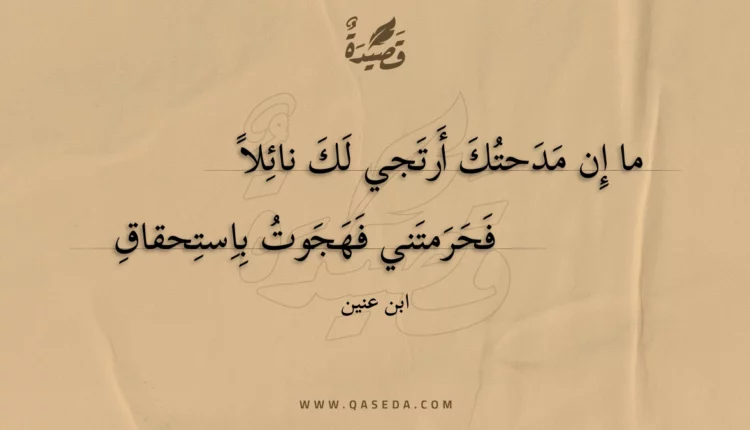 قَصِيدَةٌ
ما إِن مَدَحتُكَ أَرتَجي لَكَ نائِلاً
فَحَرَمتَني فَهَجَوتُ بِاِستِحقاقِ
ابن عنين
WWW.QASEDA.COM